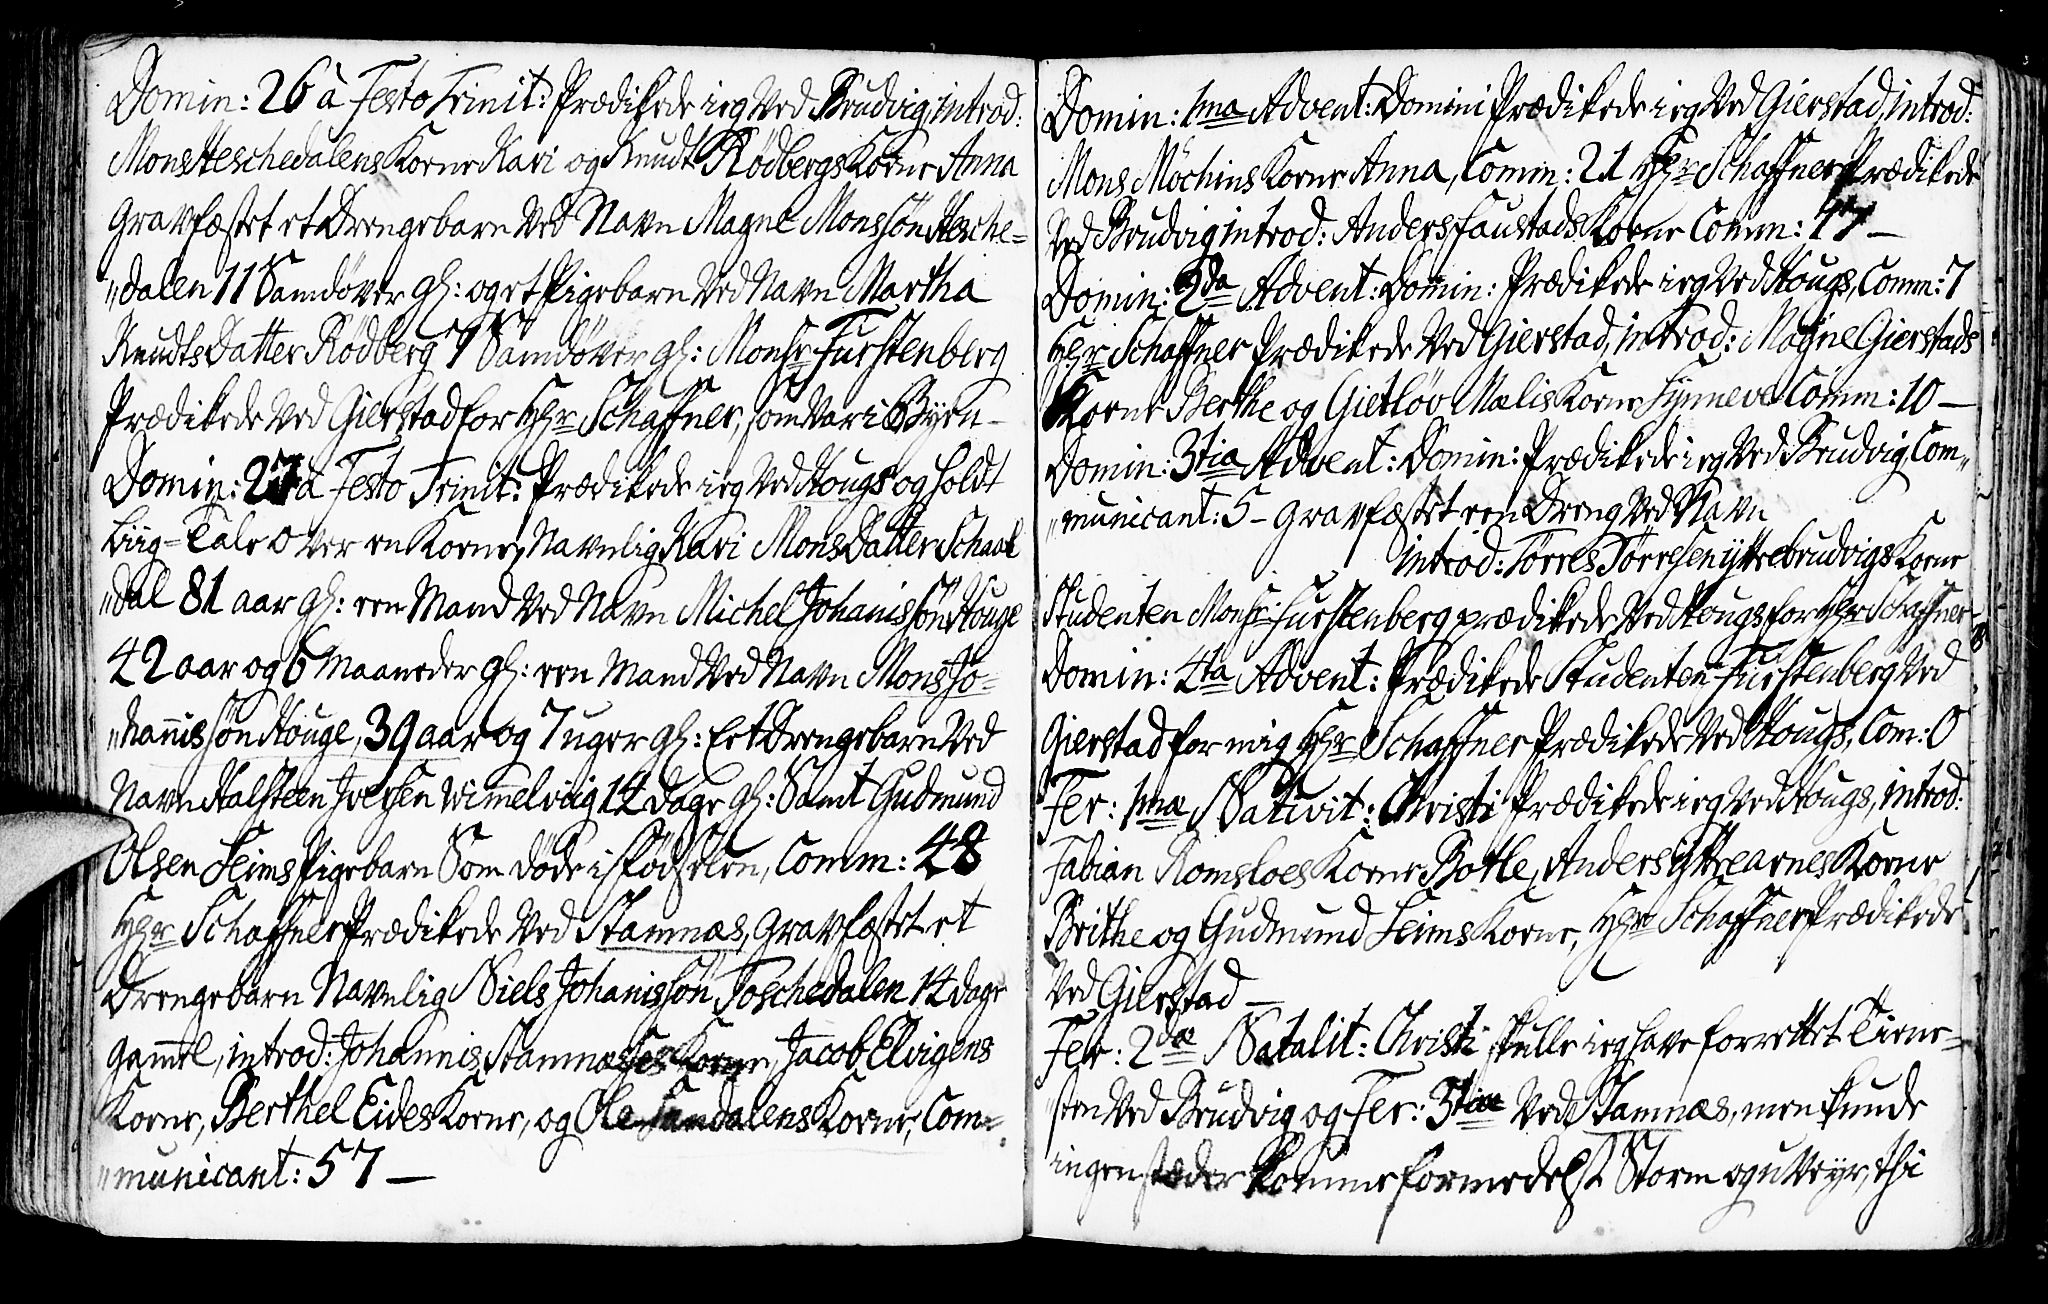 Domin: 26 à Festo Trinit: Prædikede ieg ved Brudvig, introd:
Mons Heschedalens Kone Kari og Knudt Rødbergs Kone Anna
Gravfæstet et Drengebarn ved Navn Magne Monssøn Hesche=
„dalen 11 Samdøver gl: og et Pigebarn ved Navn Martha
Knudts Datter Rødberg 7 Samdøver gl: Monsr Furstenberg
Prædikede ved Gierstad for Hr Schaffner, som var i Byen –
Domin: 27 à Festo Trinit: Prædikede ieg ved Hougs og holdt
Liig=Tale over en Kone, Navnlig Kari Mons Datter Schaul
„dal 81 aar gl: een Mand ved Navn Michel Johanissøn Houge
42 aar og 6 Maaneder gl: een Mand ved Navn Mons Jo=
„hannissøn Houge, 39 aar og 7 uger gl: Eet Drengebarn ved
Navn Halsteen Iversen Wimmelviig 14 dage gl: Samt Gudmund
Olsen Seims Pigebarn Som døde i fødselen, Comm: 48
Hr Schaffner Prædikede ved Stamnæs, Gravfæstet et
Drengebarn Navnlig Niels Johanissøn Toschedalen 14 dage
Gamel, introd: Johannis Stamnæses Kone, Jacob Elvigens
Kone, Berthel Eides Kone, og Ole Sandalens Kone, Com=
„municant: 57 –
Domin: 1ma Advent: Domini Prædikede ieg ved Gierstad, introd:
Mons Möchins Kone Anna, Comm: 21 Hr Schaffner Prædikede
ved Brudvig introd: Anders faustads Kone Comm: 47 –
Domin: 2da Advent: Domin: Prædikede ieg ved Hougs, Comm: 7
Hr Schaffner Prædikede ved Gierstad, introd: Magne Gierstads
Kone Berthe og Gietløv Mælis Kone Synneve Comm: 10 –
Domin: 3tia Advent: Domin: Prædikede ieg ved Brudvig, Com„
„municant: 5 – Gravfæstet een Dreng ved Navn
introd: Törres Törresen yttrebrudvigs Kone
Studenten Monsr: Furstenberg prædikede ved Hougs for Hr Schaffner
Domin: 4ta Advent: Prædikede Studenten Furstenberg ved
Gierstad for mig Hr Schaffner Prædikede ved Hougs, Com: 0
Fer: 1mæ Nativit: Christi Prædikede ieg ved Hougs, introd:
Fabian Romsloes Kone Botle, Anders Yttrearnes Kone
Brithe og Gudmund Seims Kone, Hr Schaffner Prædikede
ved Gierstad –
Fer: 2dæ Natalit: Christi skulle ieg have forrettet Tiene=
„sten ved Brudvig og Fer: 3tiæ ved Stamnæs, men kunde
ingenstæder komme formedelst Storm og uveyr, thi